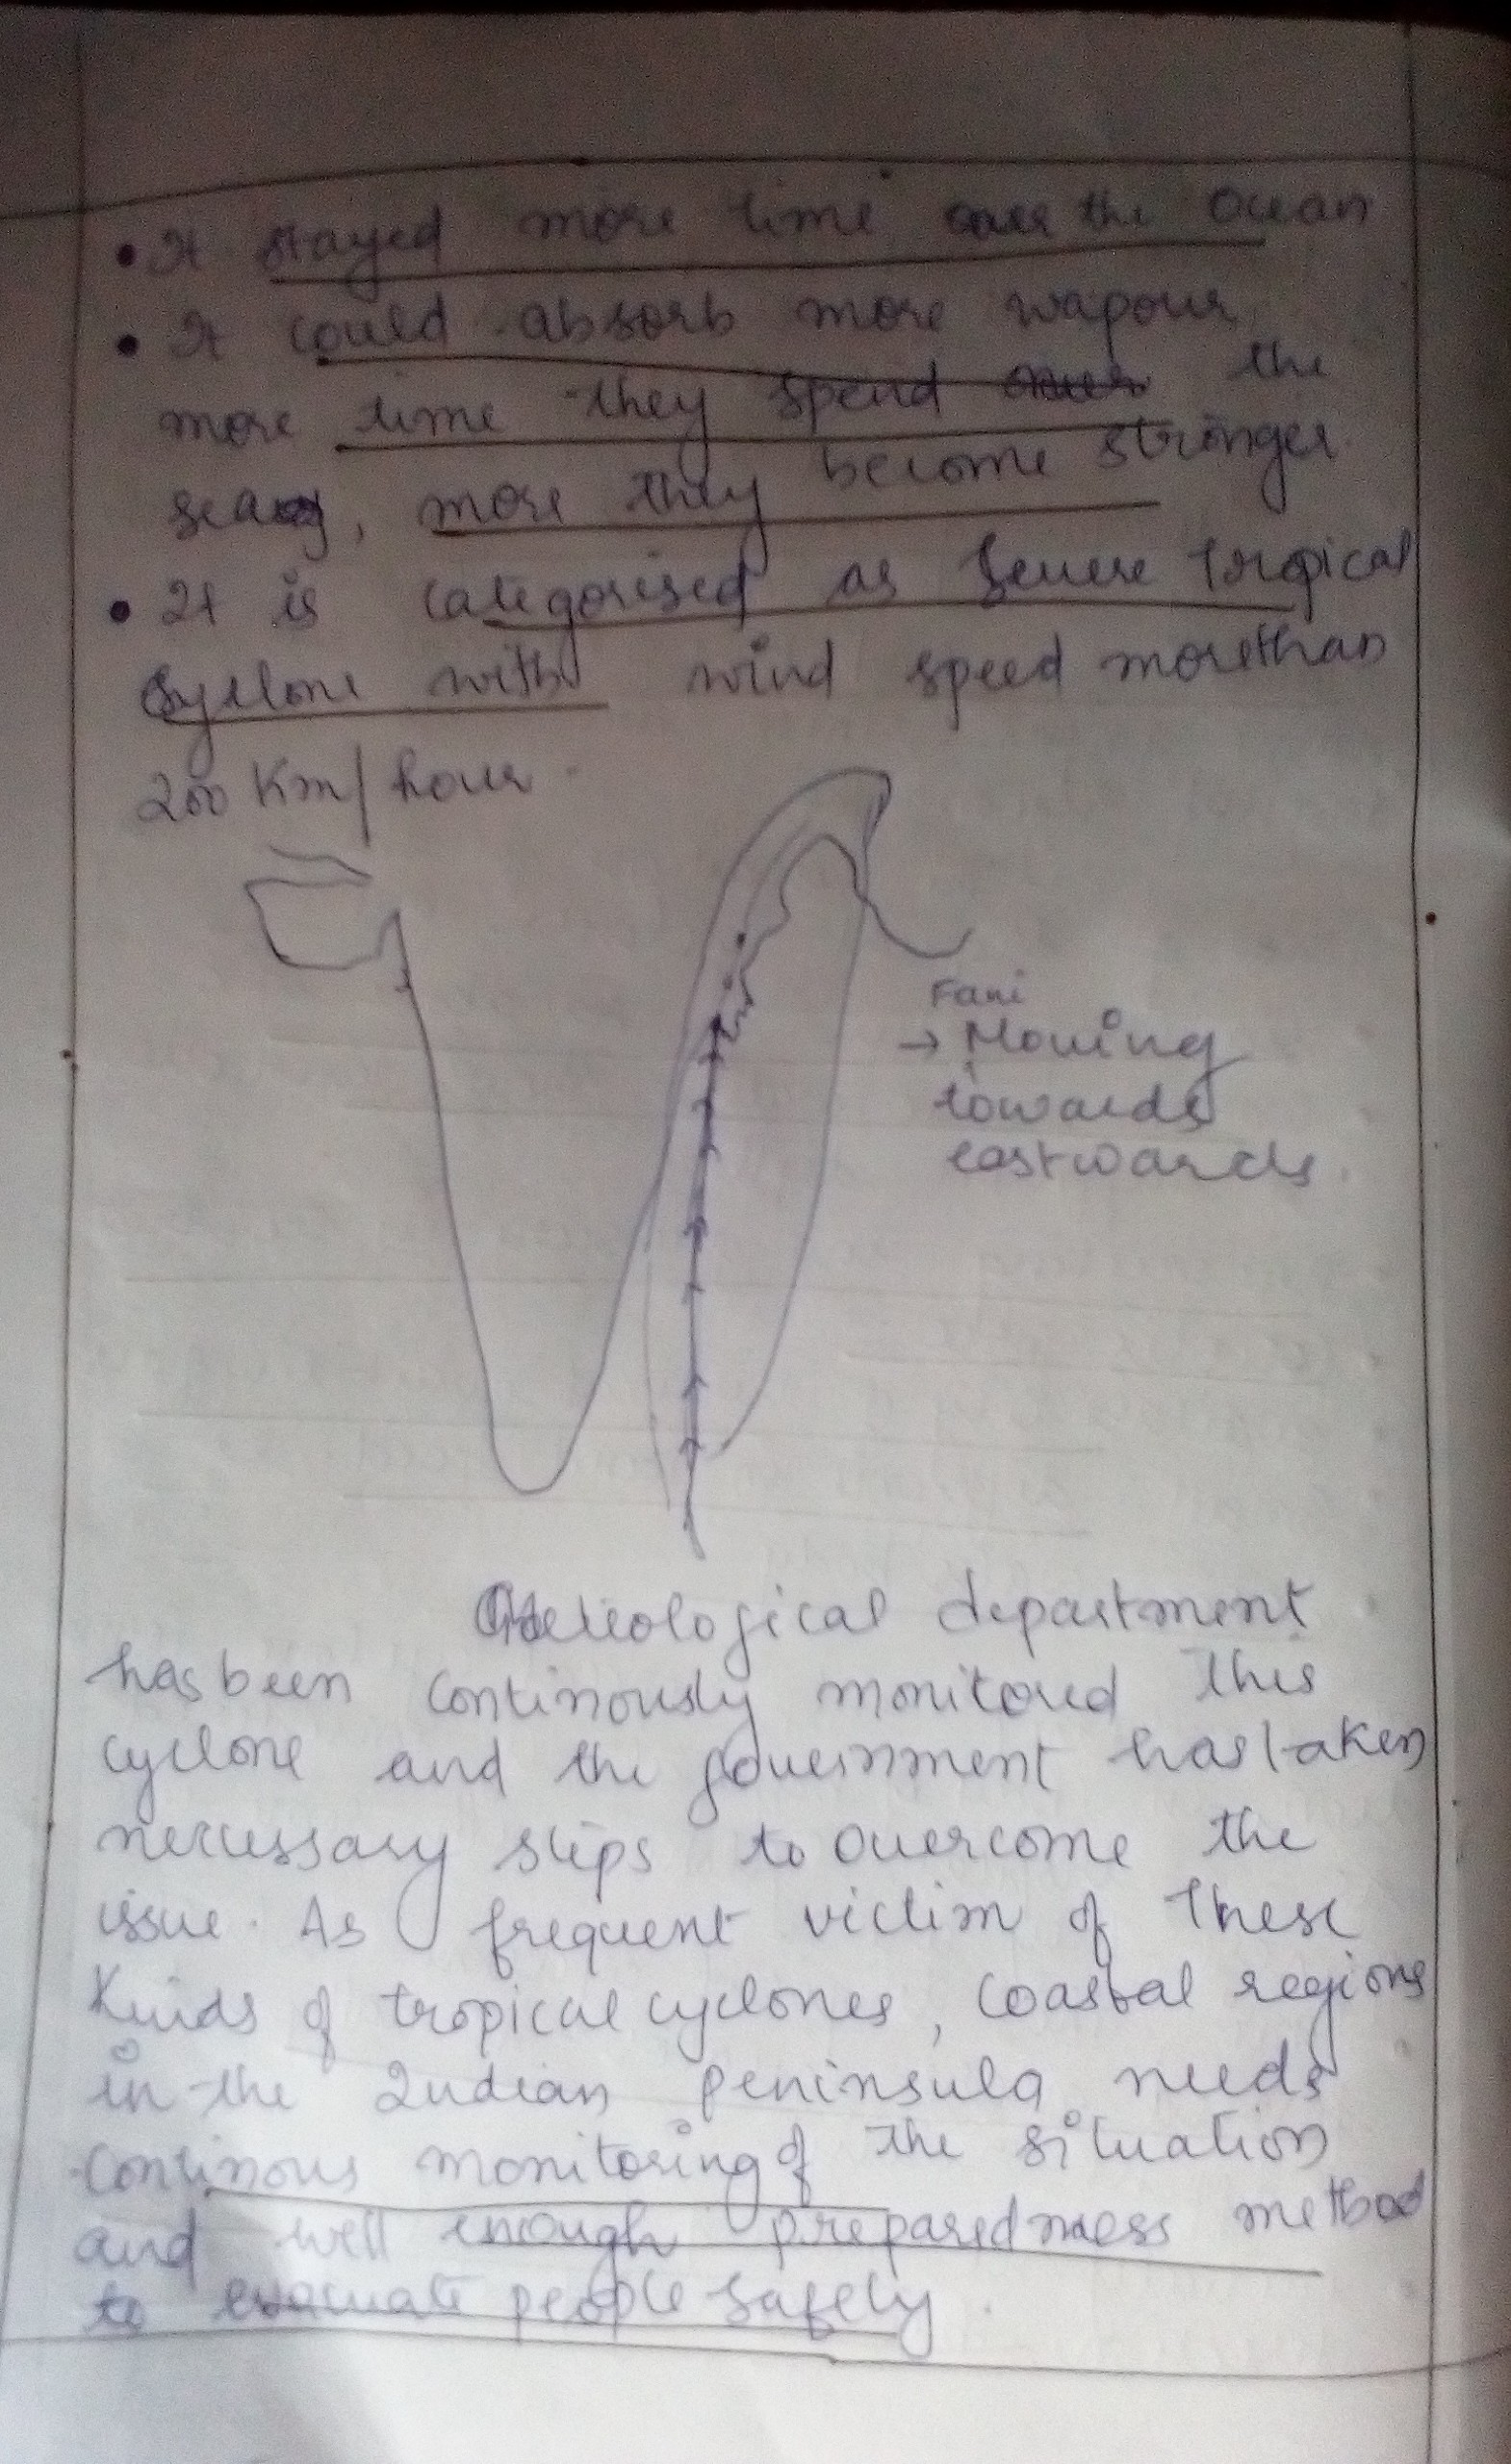 • It stayed more time over the Ocean
• It could absorb more wapour,
more time they spend over the
sea, more they become stronger.
• It is categorised as Severe tropical
Cyclone with wind speed morethan
200 Km/hour.
Fani
→ Moving
towards
eastwards.
department
has been continously monitored this
cyclone and the government has taken
necessary steps to overcome the
issue. As frequent victim of these
Kinds of tropical cyclones, coastal regions
in the Indian peninsula needs
continous monitoring of the situation
and well enough preparedness method
to evacuate people safely.